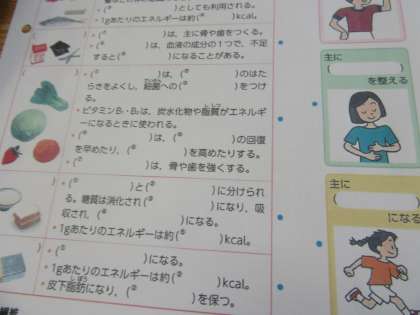 )としても利用される。
・1gあたりのエネルギーは約( )kcal。
)は、主に骨や歯をつくる。
・( )は、血液の成分の1つで、不足
すると( )になることがある。
)は、( )のはた
らきをよくし、細菌への( )をつけ
る。
・ビタミンB₁・B₂は、炭水化物や脂質がエネルギ
ーになるときに使われる。
)は、( )の回復
を早めたり、( )を高めたりする。
)は、骨や歯を強くする。
・( )と( )に分けられ
る。糖質は消化され( )になり、吸
収され、( )になる。
・1gあたりのエネルギーは約( )kcal。
)になる。
・1gあたりのエネルギーは約( )kcal。
・皮下脂肪になり、( )を保つ。
主に
( )
を整える
主に
( )
になる